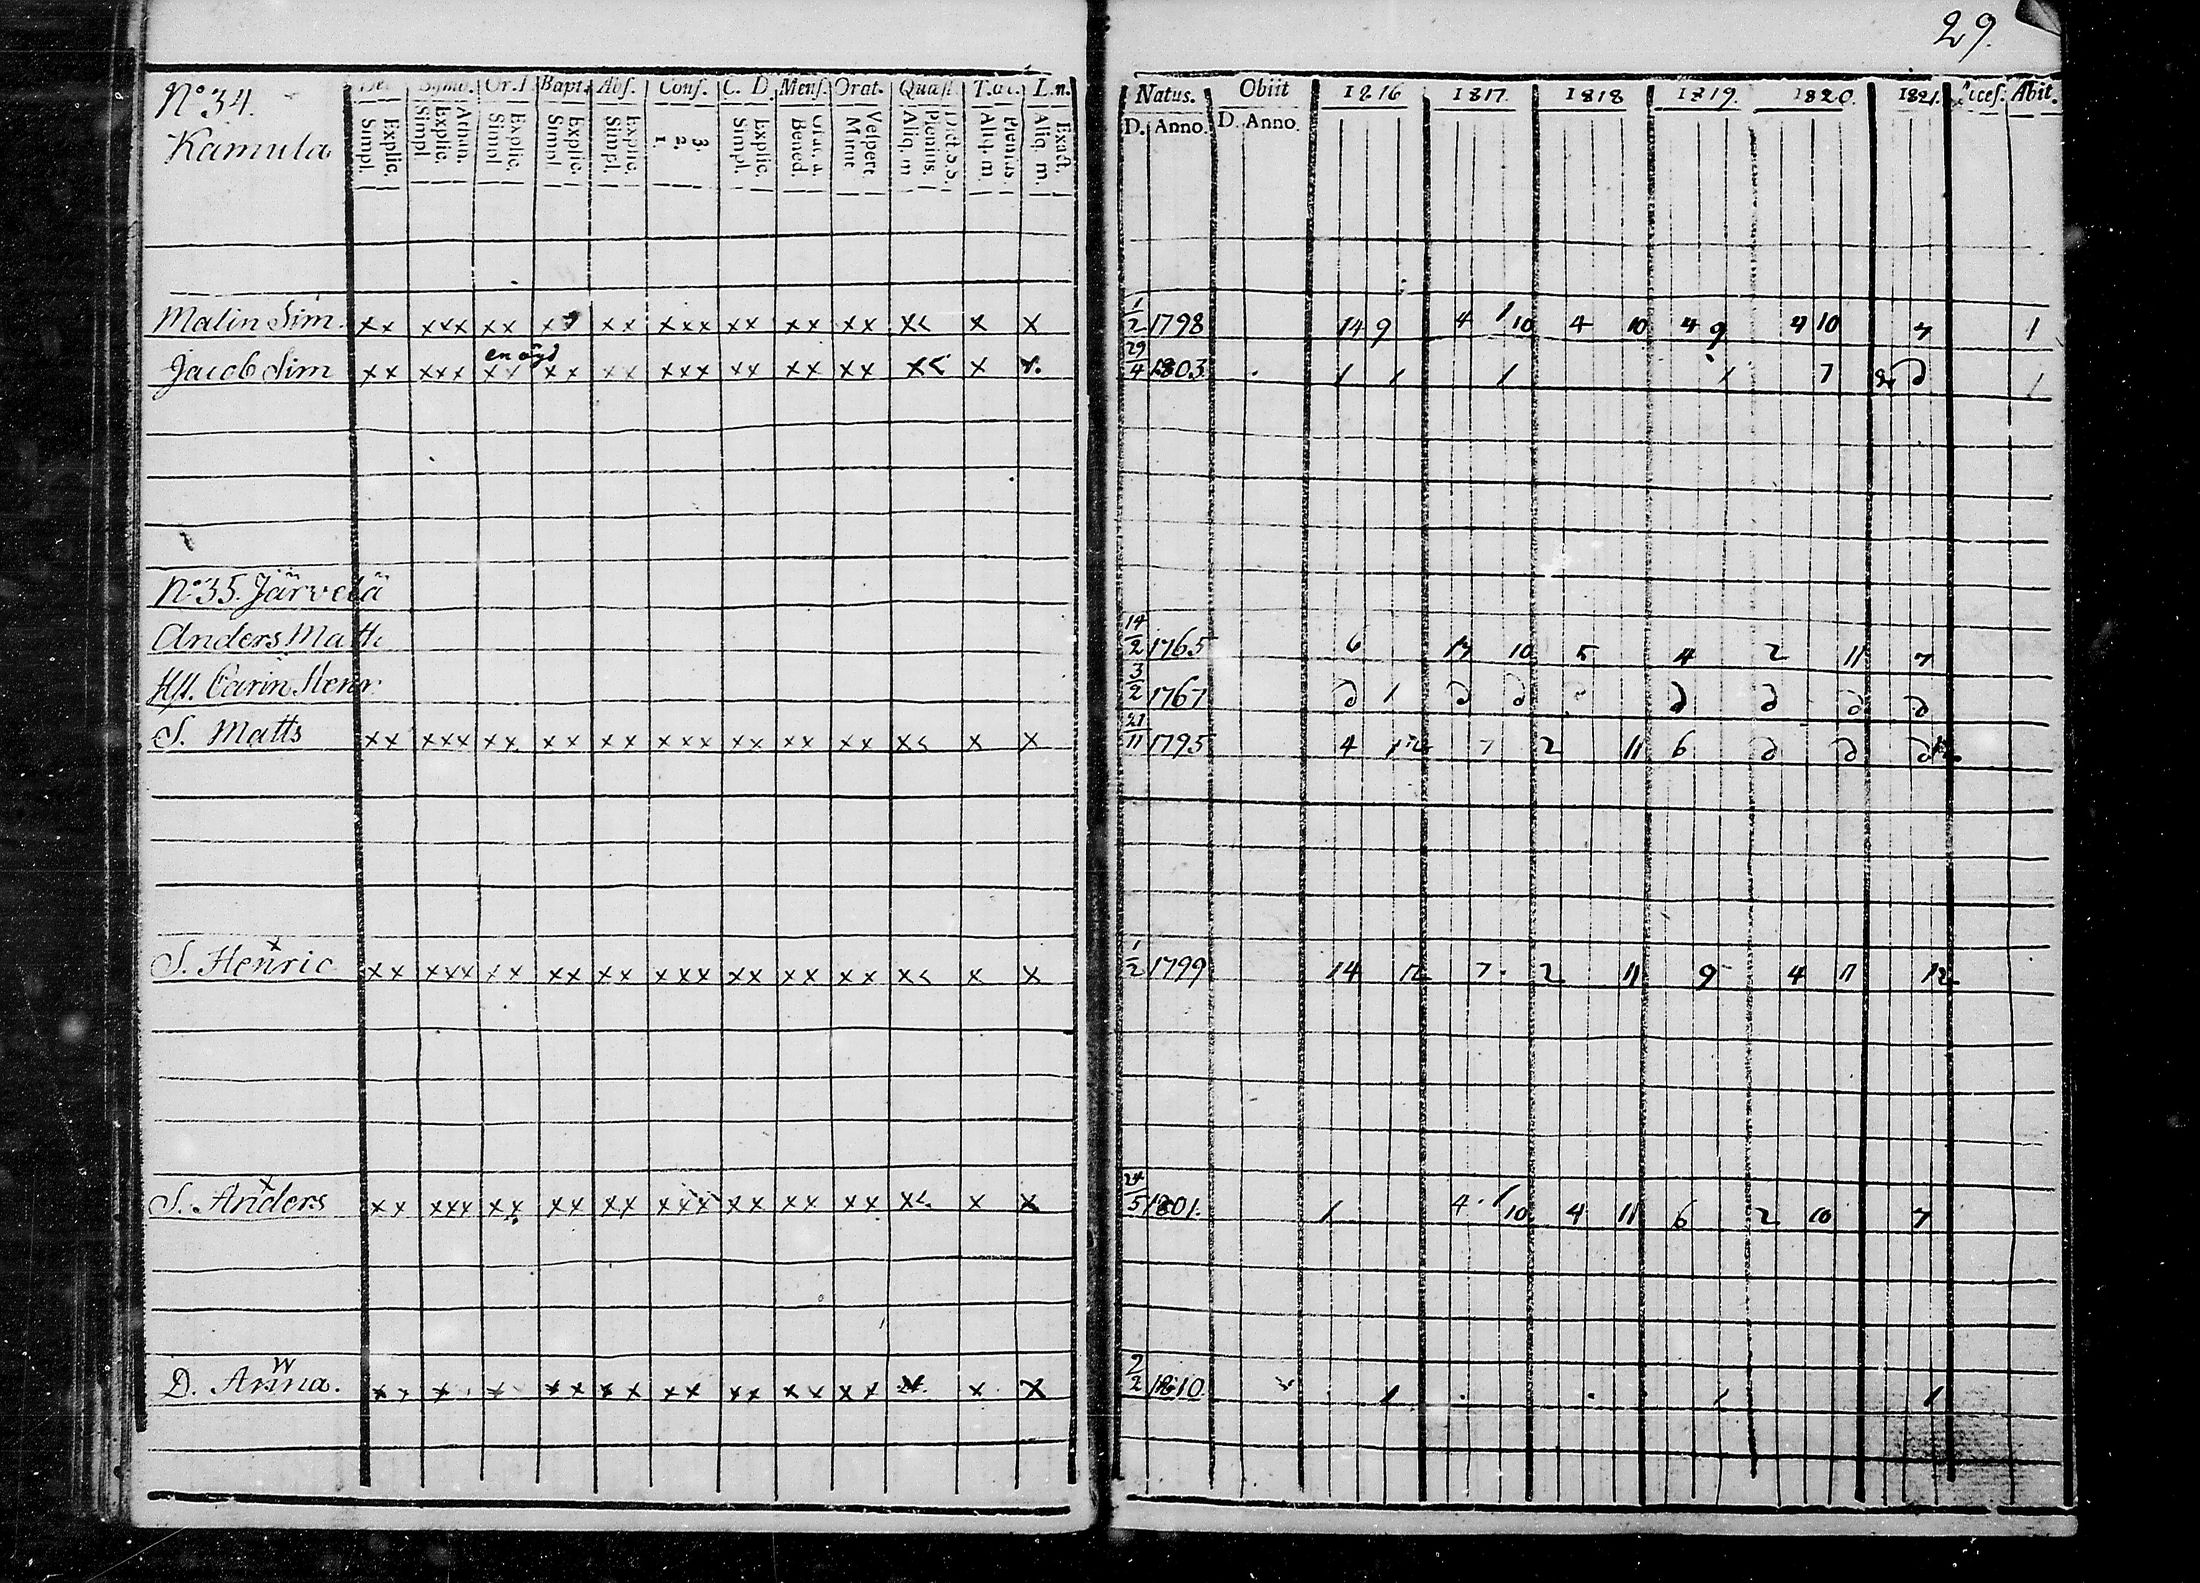 29.
N:o 34.
Kamula
Symb. Or. D Bapt. Abs. Conf. C. D. Mens. Orat. Quæst. T. œc. L. n.
Simpl. Explic.
Simpl. Explic. Athan.
Simpl. Explic.
Simpl. Explic.
Simpl. Explic.
1. 2. 3.
Simpl. Explic.
Bened.
Mat Vespert
Aliq. m. Plenius. Dict. S. S.
Aliq. m. Plenius.
Aliq. m. Exact.
Natus. Obiit 1816 1817. 1818 1819. 1820. 1821. Acces. Abit.
D. Anno. D. Anno.
Malin Sim. xx xxx xx xx xxx xx xx xx x< x x 1/2 1798 14 9 4 1/10 4 10 4 9 4 10 7 1
en ögd
Jacob Sim xx xxx xx xx xx xxx xx xx xx x< x x. 29/4 1803 1 1 1 1 7 1
N:o 35. Järvelä
Anders Matts 14/2 1765 6 17 10 5 4 2 11 7
H. Carin Henr. 3/2 1767 1
S. Matts xx xxx xx xx xx xxx xx xx xx x< x x 21/11 1795 4 7 2 11 6
S. Henric xx xxx xx xx xx xxx xx xx xx x< x x 1/2 1799 14 12 7. 2 11 9 4 11 12
S. Anders xx xxx xx xx xx xxx xx xx xx x< x x 24/5 1801. 1 4. 1/10 4 11 6 2 10 7
D. Anna. xx x xx xx xx xx xx xx x. x 2/2 1810. 1 1 1